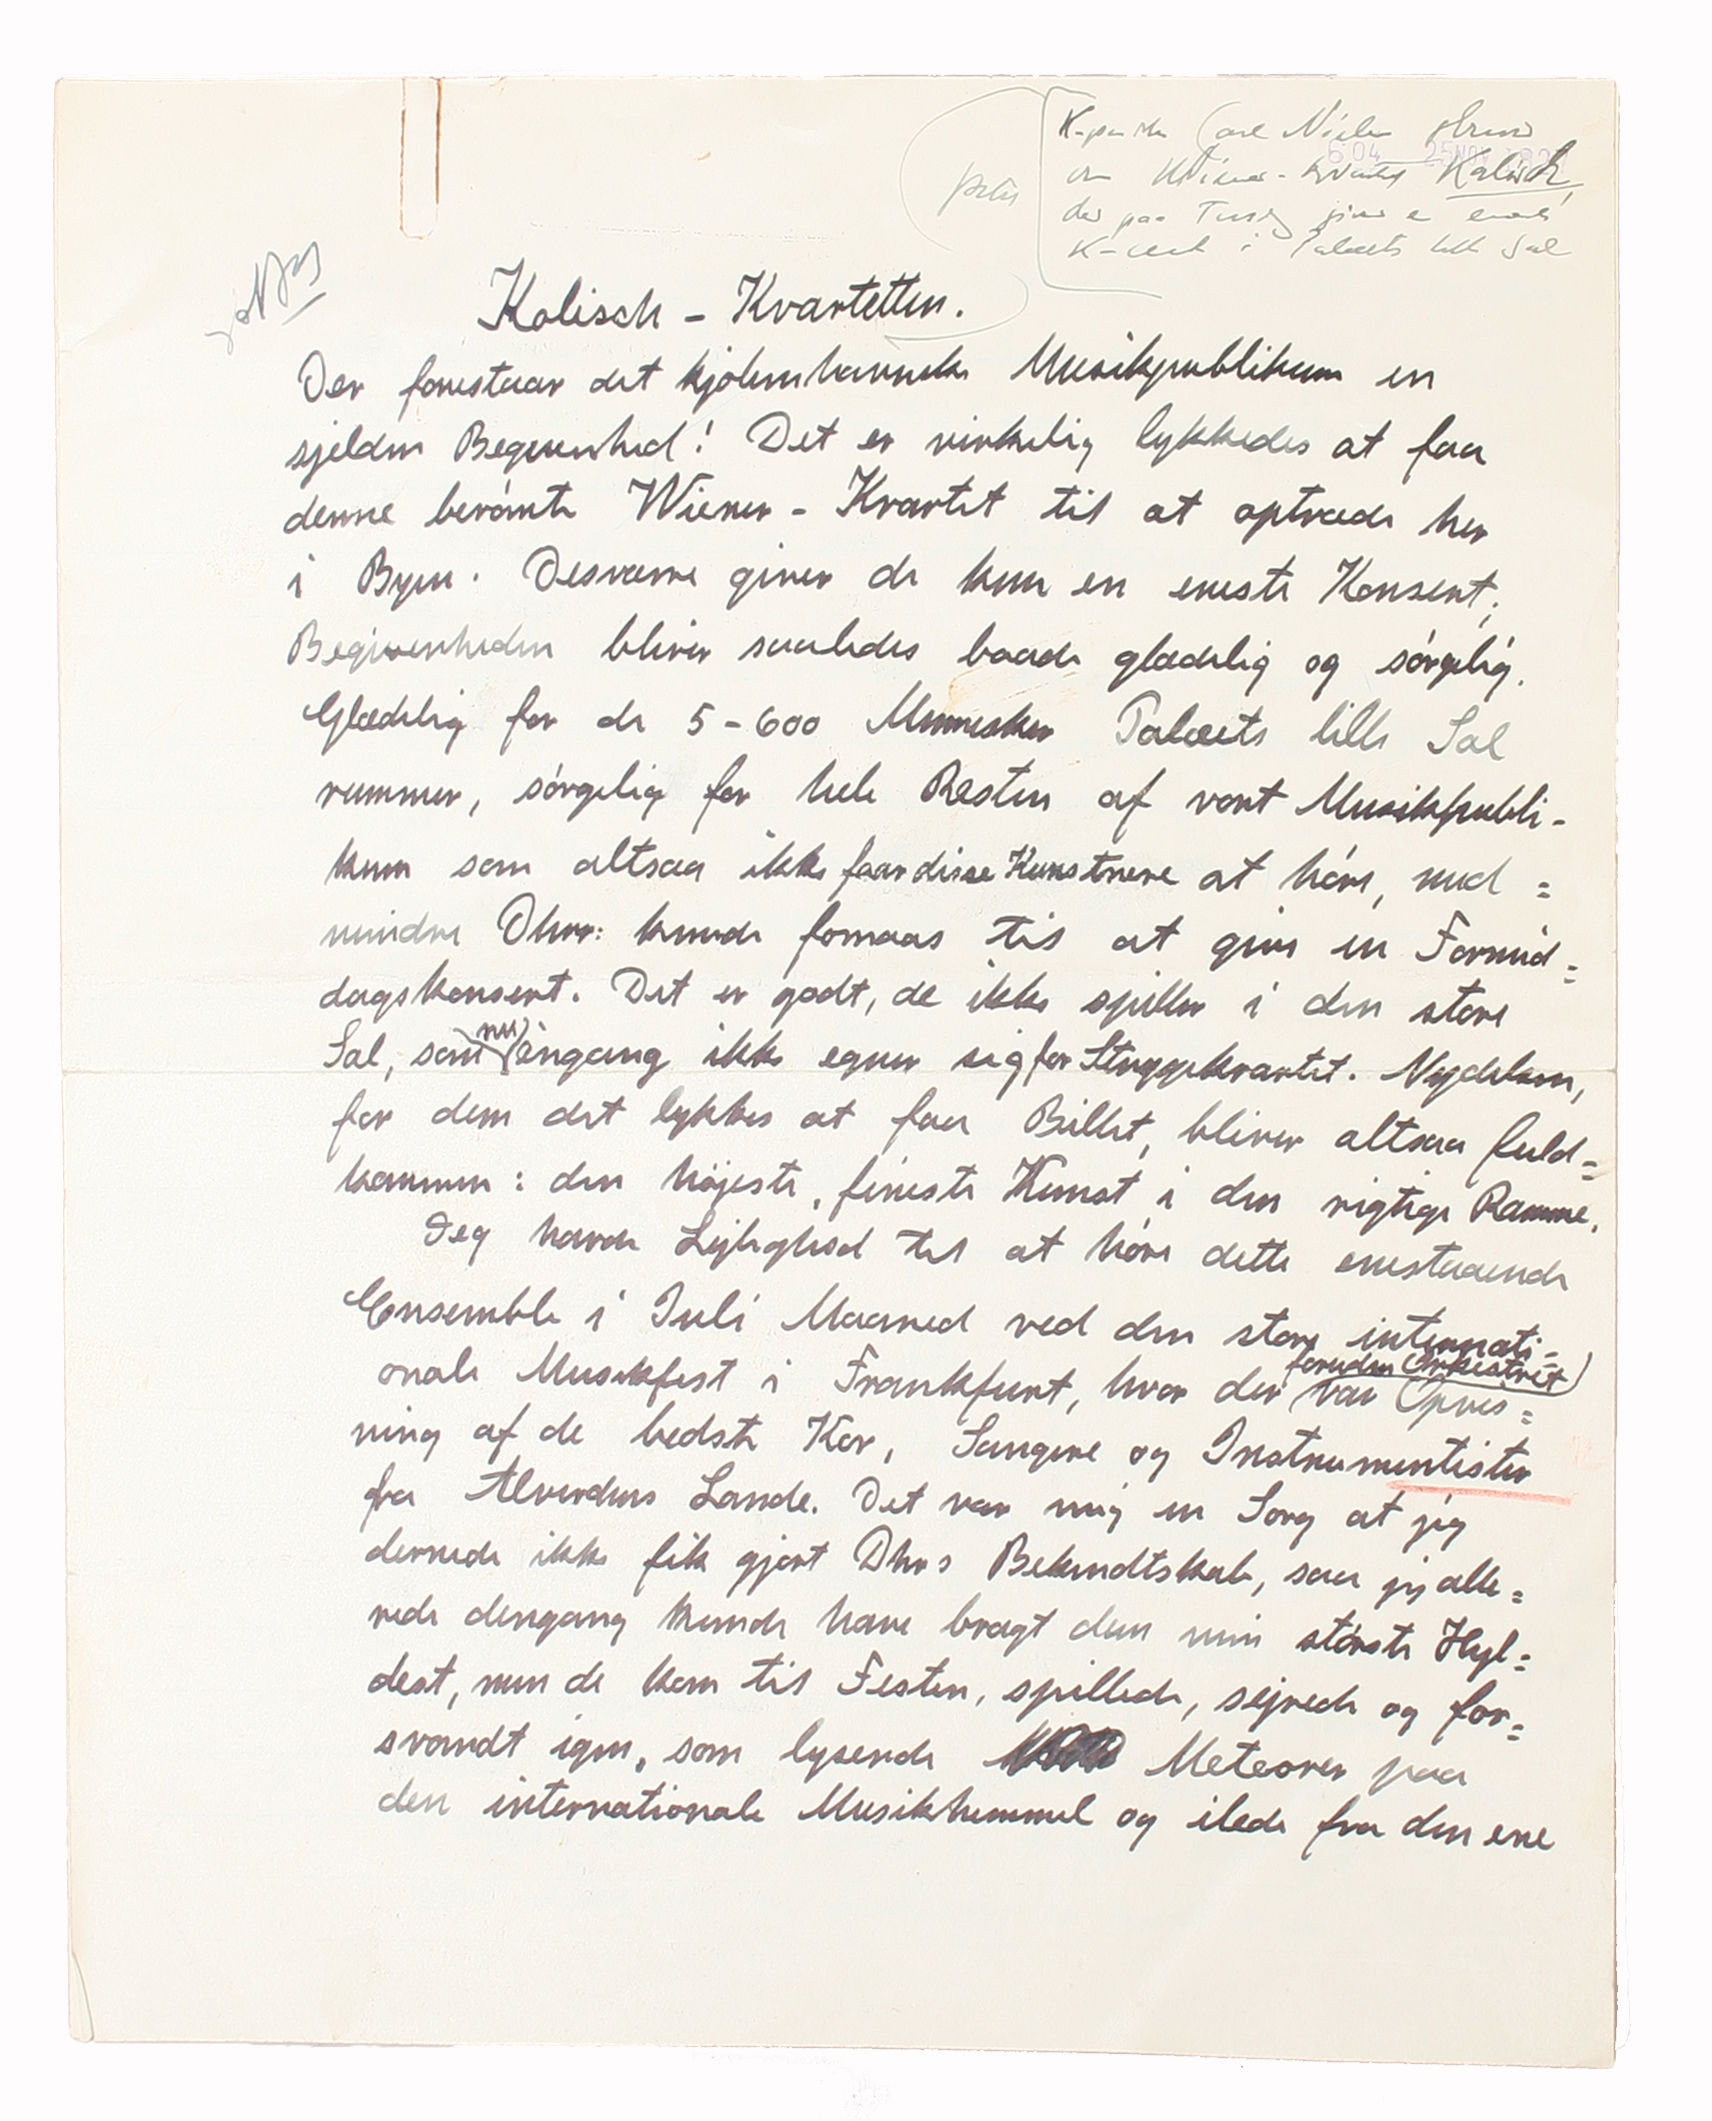 Komponisten Carl Nielsen skriver
604 25 NOV 1927
om Wiener-Kvartetten Kolisch,
der paa Tirsdag giver en eneste
K-cert i Palæets lille Sal
Kolisch - Kvartetten.
Der forestaar det kjøbenhavnske Musikpublikum en
sjelden Begivenhed! Det er virkelig lykkedes at faa
denne berømte Wiener - Kvartet til at optræde her
i Byen. Desværre giver de kun en eneste Konsert;
Begivenheden bliver saaledes baade glædelig og sørgelig.
Glædelig for de 5-600 Mennesker Palæets lille Sal
rummer, sørgelig for hele Resten af vort Musikpubli-
kum som altsaa ikke faar disse Kunstnere at høre, med =
mindre Dhrr: kunde formaas til at give en Formid=
dagskonsert. Det er godt, de ikke spiller i den store
Sal, som nu engang ikke egner sig for Strygekvartet. Nydelsen,
for dem det lykkes at faa Billet, bliver altsaa fuld=
kommen: den højeste, fineste Kunst i den rigtige Ramme.
Jeg havde Lejlighed til at høre dette enestaaende
Ensemble i Juli Maaned ved den store internati-
onale Musikfest i Frankfurt, hvor der foruden Orkestret var Opvis=
ning af de bedste Kor, Sangere og Instrumentister
fra Alverdens Lande. Det var mig en Sorg at jeg
dernede ikke fik gjort Dhrs Bekendtskab, saa jeg alle=
rede dengang kunde have bragt dem min største Hyl=
dest, men de kom til Festen, spillede, sejrede og for=
svandt igen, som lysende Meteorer paa
den internationale Musikhimmel og ilede fra den ene